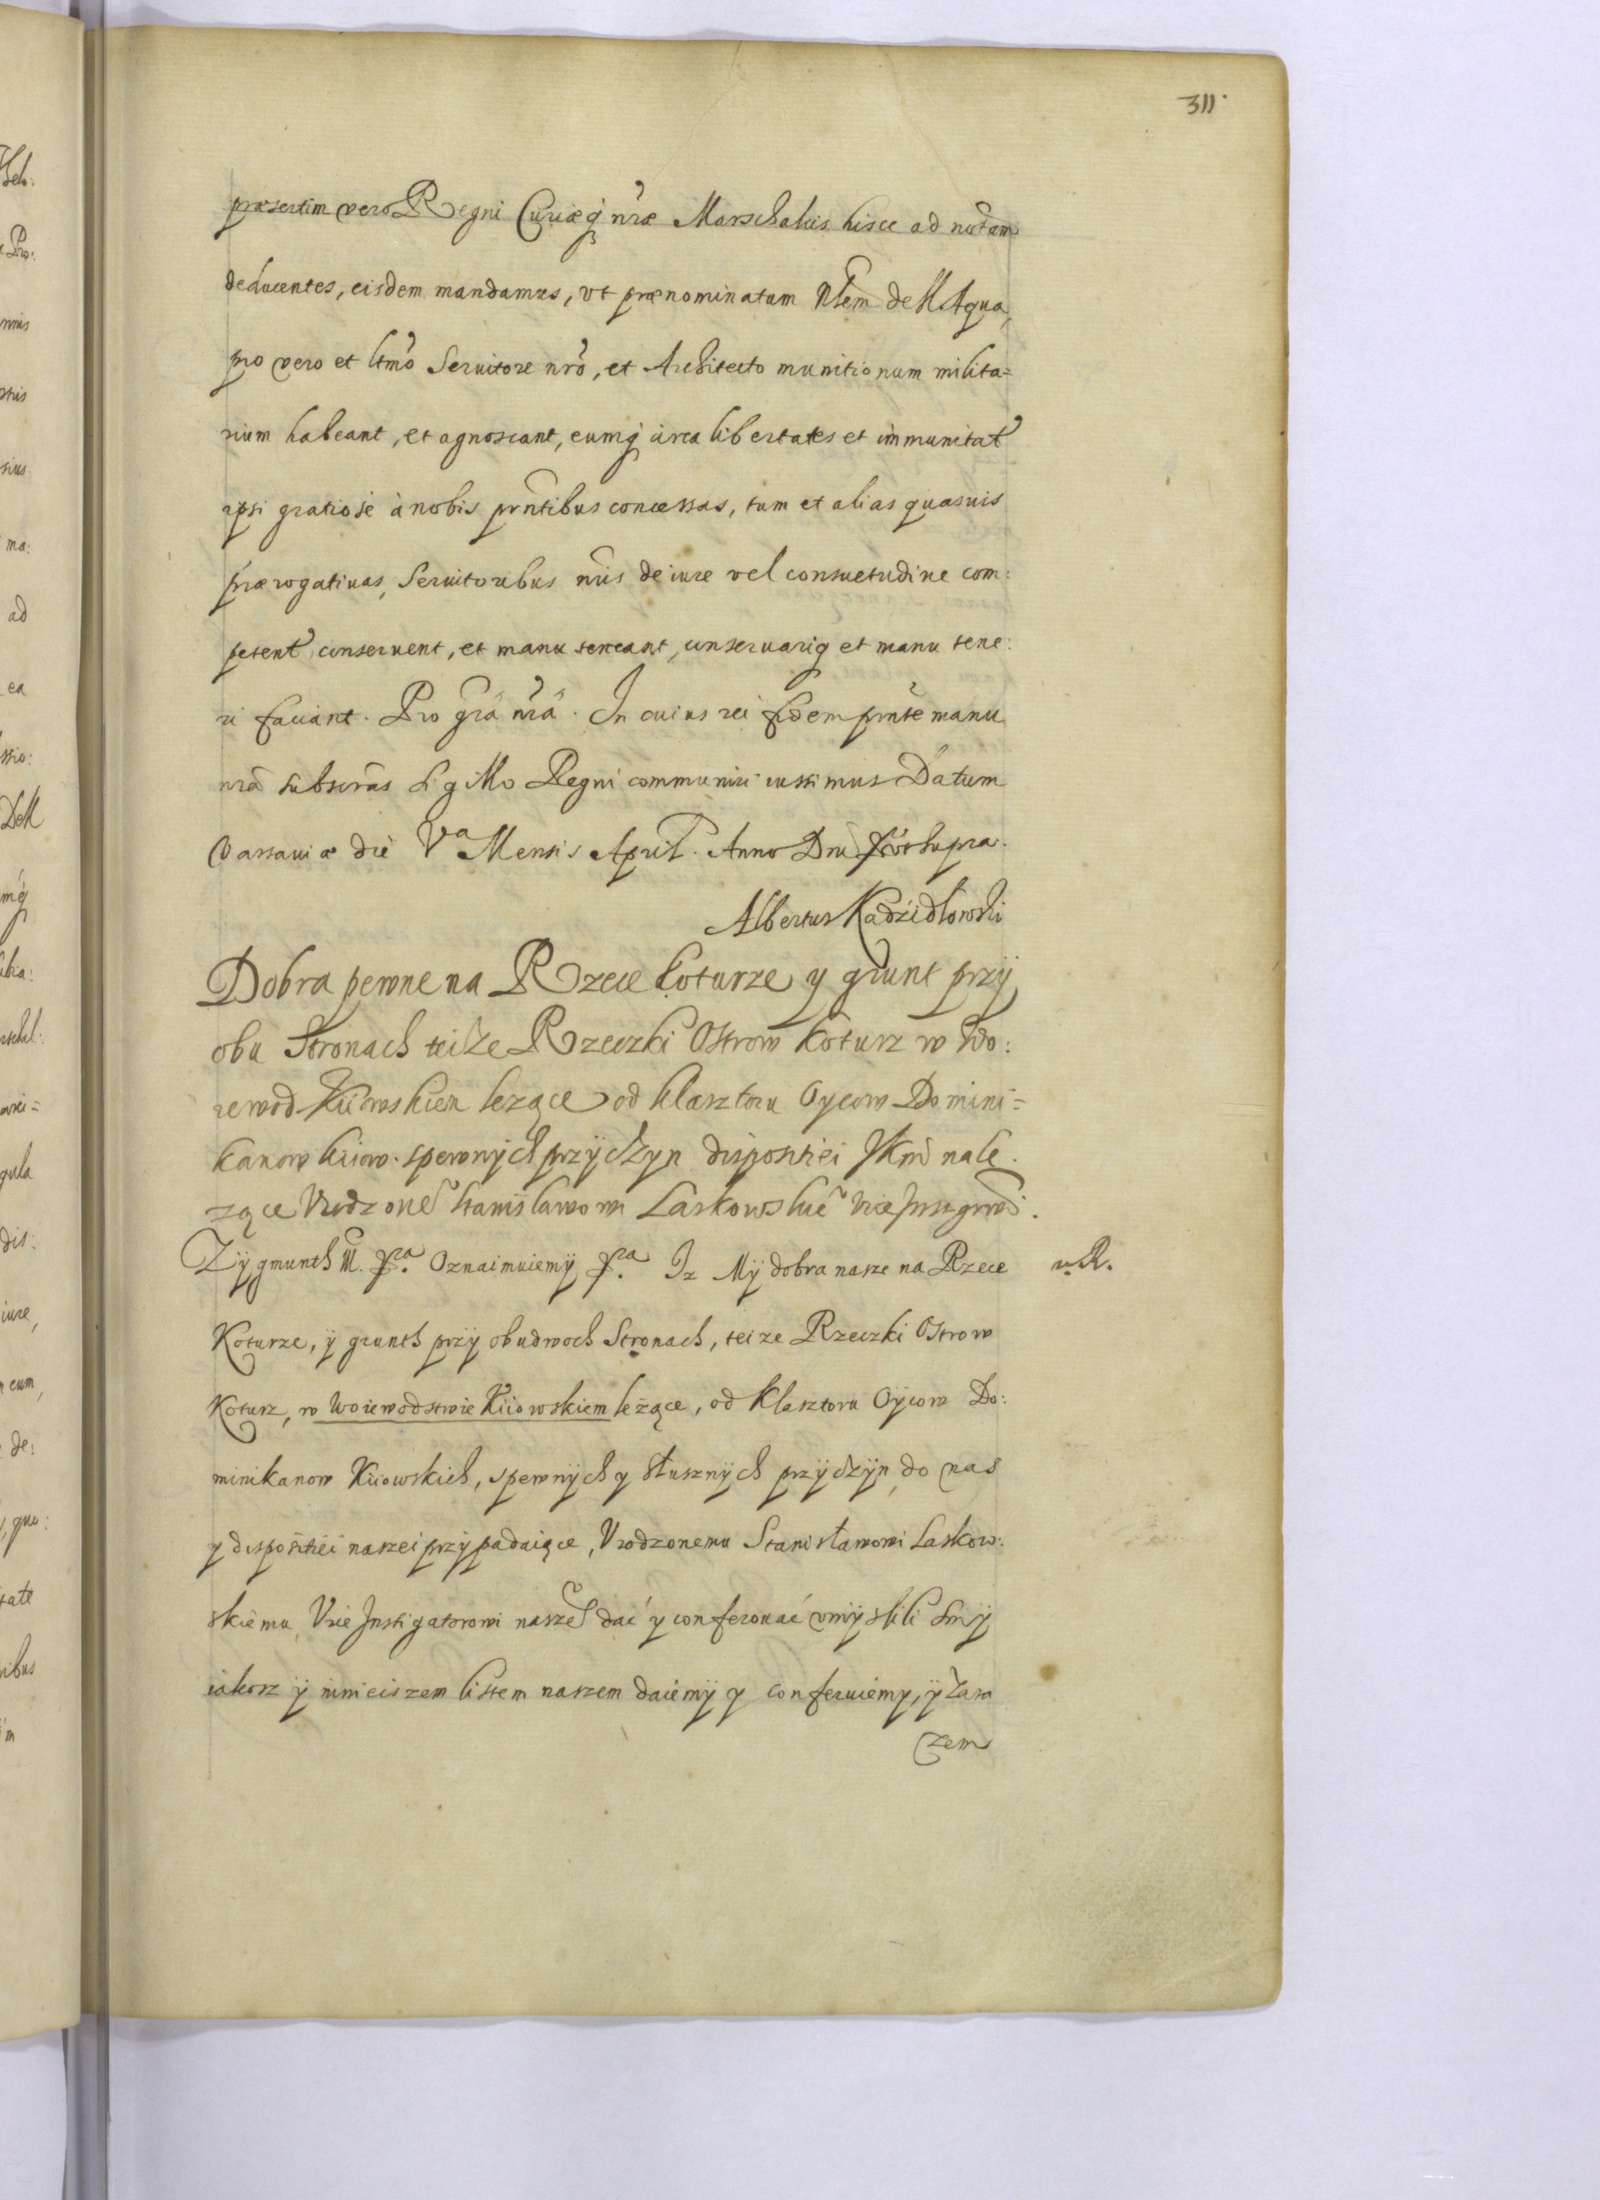 311.
præsertim vero Regni Curiæq̃ nr̃æ Marschalcis hisce ad notam
deducentes, eisdem mandamus, vt prænominatum Nlem dell Aqua,
pro vero et ltmo Seruitore nr̃o, et Architecto munitionum milita=
rium habeant, et agnoscant, eumq̃ circa libertates et immunitat
ipsi gratiose à nobis prntibus concessas, tum et alias quasuis
prærogatiuas, Seruitoribus nr̃is de iure vel consuetudine com:
petent conseruent, et manu teneant, conseruariq et manu tene:
ri faciant. Pro grã nr̃ã. In cuius rei fidem prnte manu
nr̃a subscras Sigillo Regni communiri iussimus Datum
Varsauiæ die Va Mensis April. Anno Dni supra.
Albertus Kadzidłowski
Dobra pewne na Rzece Koturze y grunt przÿ
obu Stronach teiże Rzeczki Ostrow Koturz w Wo:
iewod Kiiowskiem leżące od klasztoru Oycow Domini=
kanow kiiow. spewnÿch przÿczyn dispositiei JKmci nale.
zące Vrodzone Stanisławowi Laskowskie Vice Instigrwi.
Zÿgmunth III. &ra. Oznaimuiemÿ &ra. Iz Mÿ dobra nasze na Rzece
u. R.
Koturze, ÿ grunth przÿ obudwoch Stronach, teize Rzeczki Ostrow
Koturz, w Woiewodstwie Kiiowskiem leżące, od Klasztoru Oÿcow Do:
minikanow Kiiowskich, spewnÿch y słusznÿch przÿczÿn, do nas
y dispositiei naszei przÿpadaiące, Vrodzonemu Stanisławowi Laskow:
skiemu, Vice Instigatorowi nasze dać y conferować vmÿslili smÿ
iakosz ÿ ninieiszem listem naszem daiemÿ y conferuiemy, ÿ Zara
zem